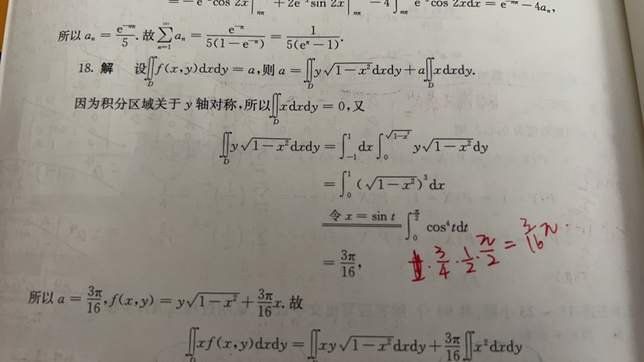 = -e cos 2x | + 2e sin 2x | - 4∫ e cos 2xdx = e^{-nπ} - 4aₙ,
所以 aₙ = \frac{e^{-nπ}}{5}. 故 \sum_{n=1}^{∞} aₙ = \frac{e^{-π}}{5(1-e^{-π})} = \frac{1}{5(e^{π}-1)}.
18. 解 设∬_D f(x,y)dxdy = a, 则 a = ∬_D y√(1-x²)dxdy + a∬_D xdxdy.
因为积分区域关于 y 轴对称, 所以∬_D xdxdy = 0, 又
∬_D y√(1-x²)dxdy = ∫_{-1}^{1} dx ∫_{0}^{√(1-x²)} y√(1-x²)dy
= ∫_{0}^{1} (√(1-x²))³dx
令 x = sin t ∫_{0}^{\frac{π}{2}} cos⁴tdt
= \frac{3π}{16},
· \frac{3}{4} · \frac{1}{2} · \frac{π}{2} = \frac{3}{16}π.
所以 a = \frac{3π}{16}, f(x,y) = y√(1-x²) + \frac{3π}{16}x. 故
∬_D xf(x,y)dxdy = ∬_D xy√(1-x²)dxdy + \frac{3π}{16}∬_D x²dxdy